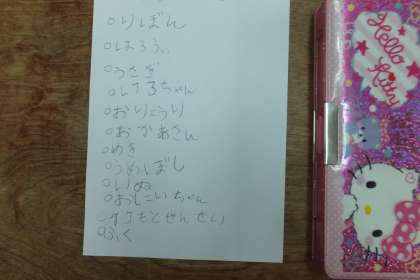 ○りぼん
○はろう、、
○うさぎ
○しずるちゃん
○おりこうり
○おかあさん
○めき
○うめぼし
○いぬ
ちゃん
もとせんせい
○ふく
Hello
Kitty